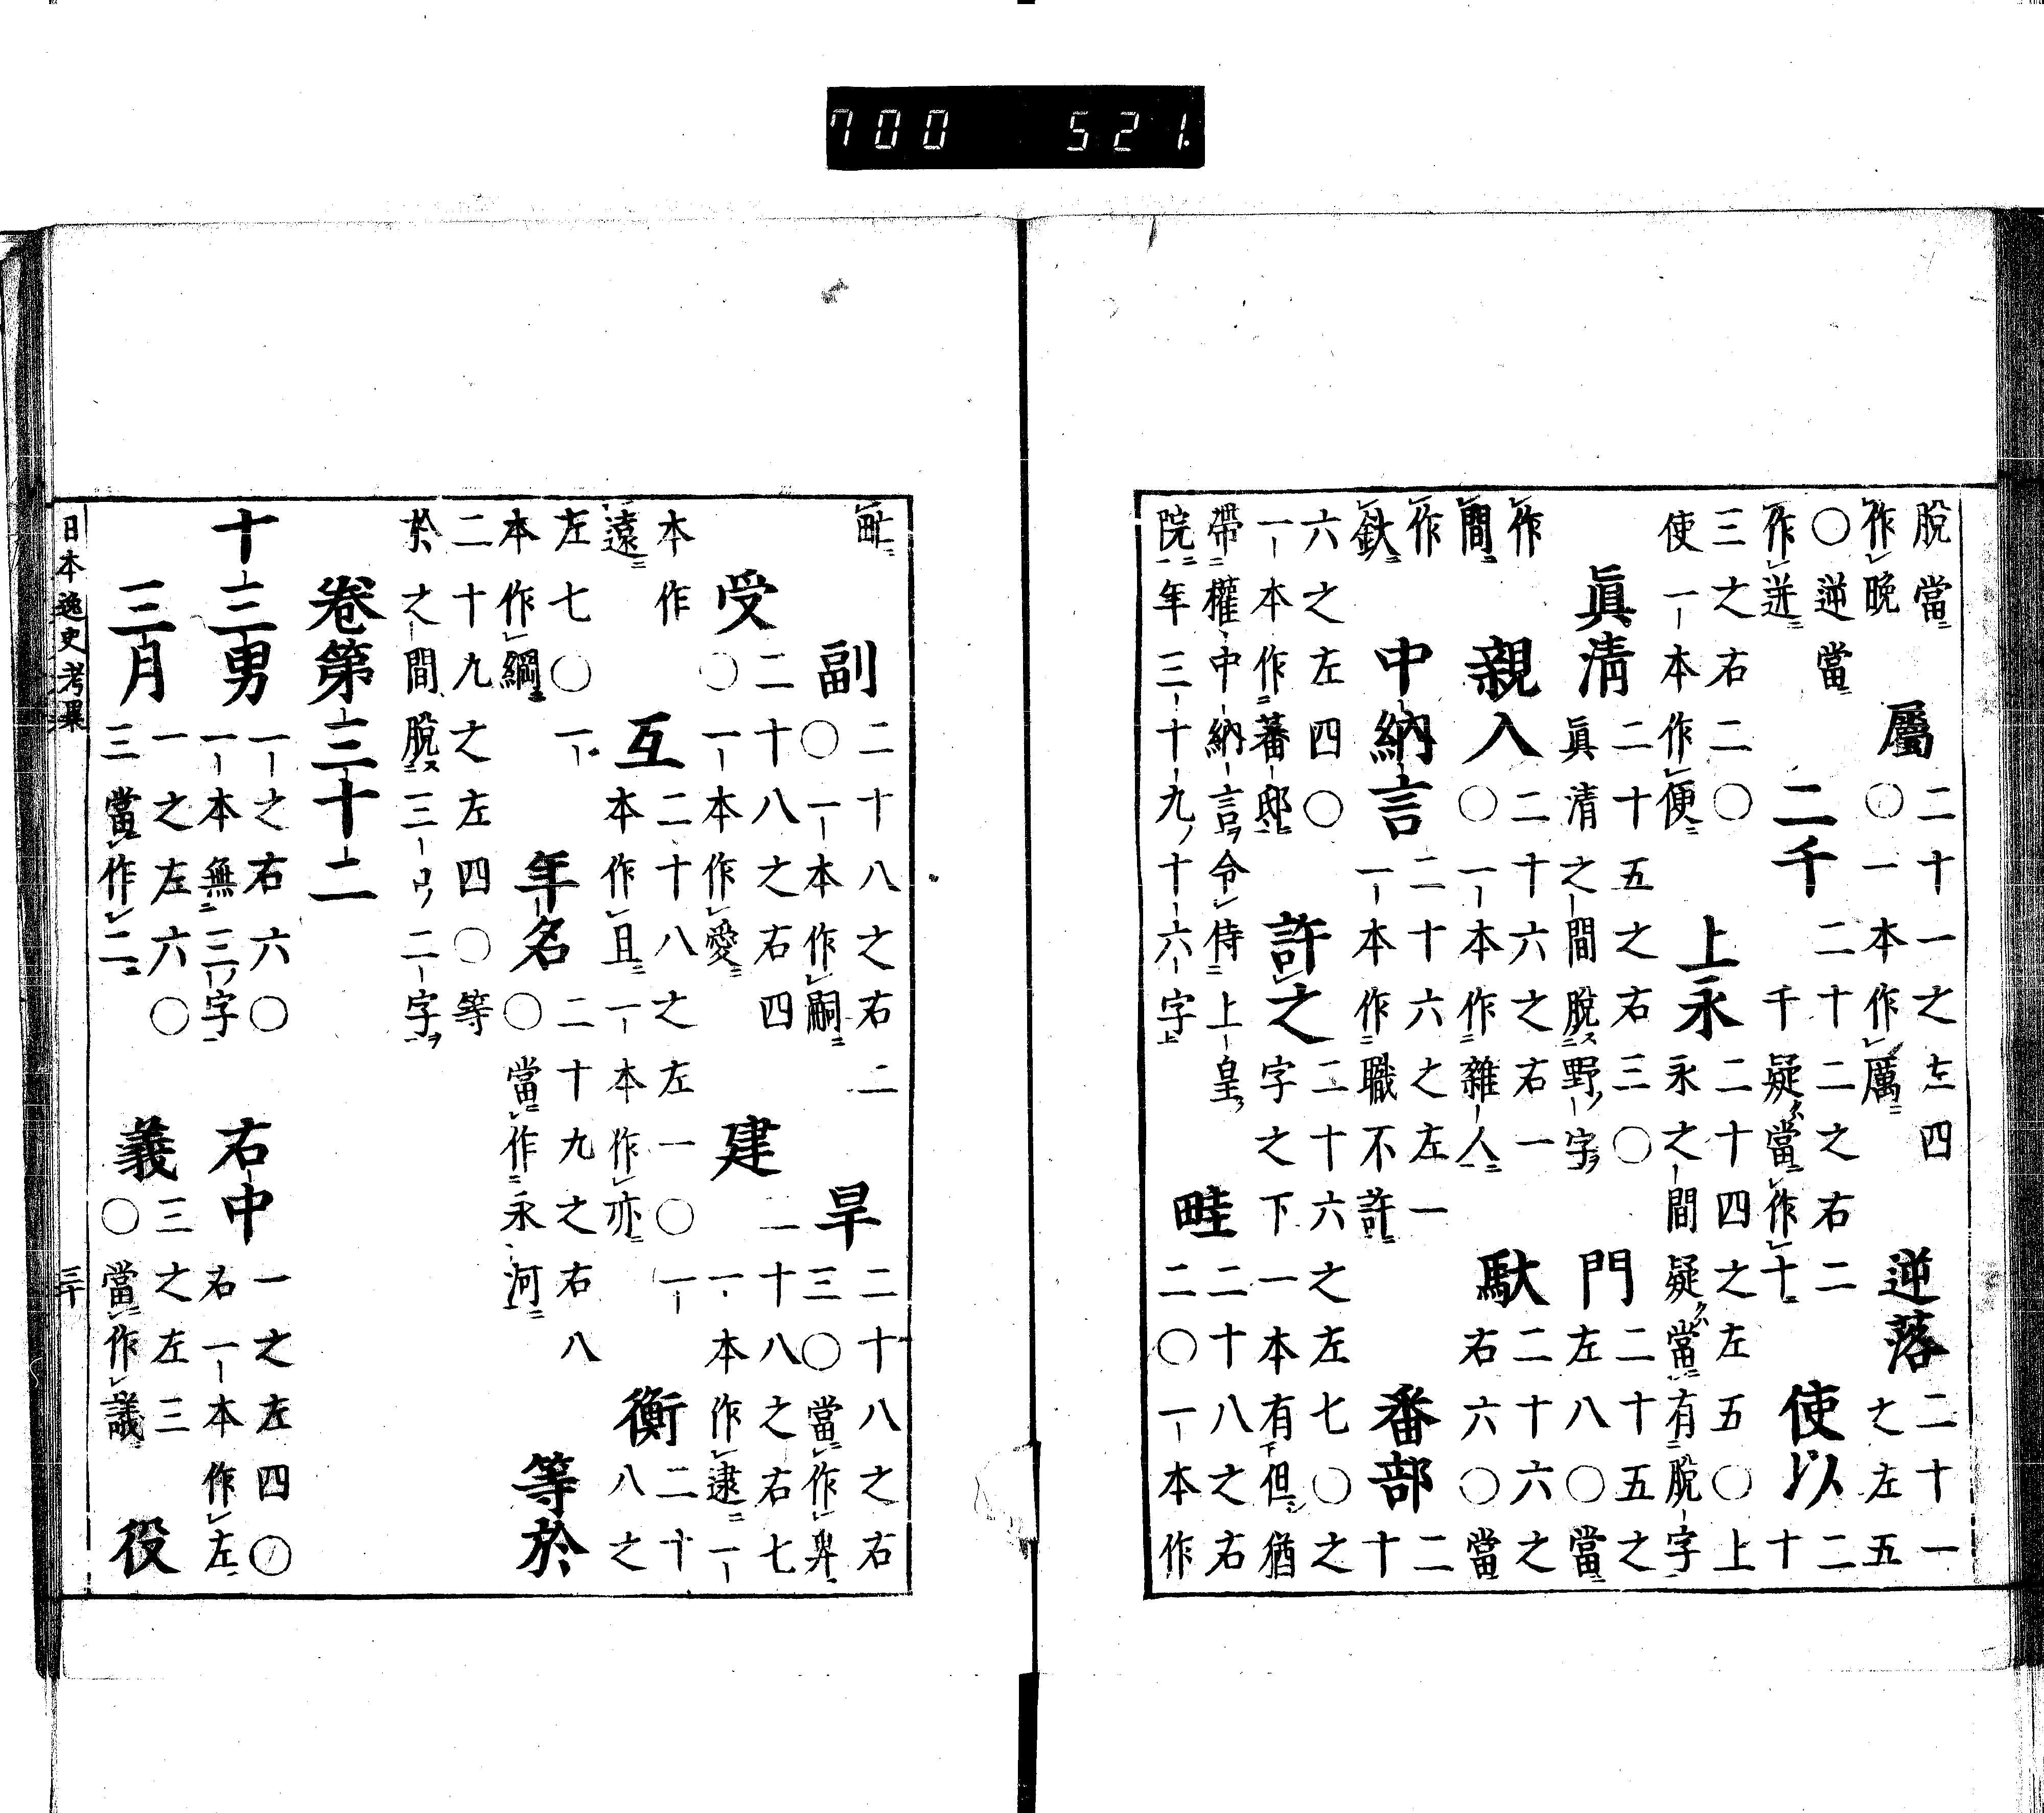 700 521
脱當作晩 屬 二十一之左四〇一本作厲 逆落 二十一之左五
〇逆當作迸 二千 二十二之右二千疑當作十 使以 二十
三之右二〇使一本作便 上永 二十四之左五〇上永之間疑當有脱字
眞清 二十五之右三〇眞清之間脱野字 門 二十五之左八〇當
作間 親入 二十六之右一〇一本作雜人 馱 二十六之右六〇當
作鈦 中納言 二十六之左一一本作職不許 番部 二十
六之左四〇一本作蕃邸 許之 二十六之左七〇之字之下一本有但猶
帶權中納言令侍上皇院年三十九十六字 畦 二十八之右二〇一本作
副 二十八之右二〇一本作嗣 旱 二十八之右三〇當作
受 二十八之右四〇一本作愛 建 二十八之右七一本作逮一
本作遠 互 二十八之左一〇一本作且一本作亦 衡 二十八之
左七〇一本作綱 年名 二十九之右八〇當作永河 等於
二十九之左四〇等於之間脱三口二字
卷第三十二
十三男 一之右六〇一本無三字 右中 一之左四〇右一本作左
三月 一之左六〇三當作二 義 三之左三〇當作議 役
日本逸史考異 三十